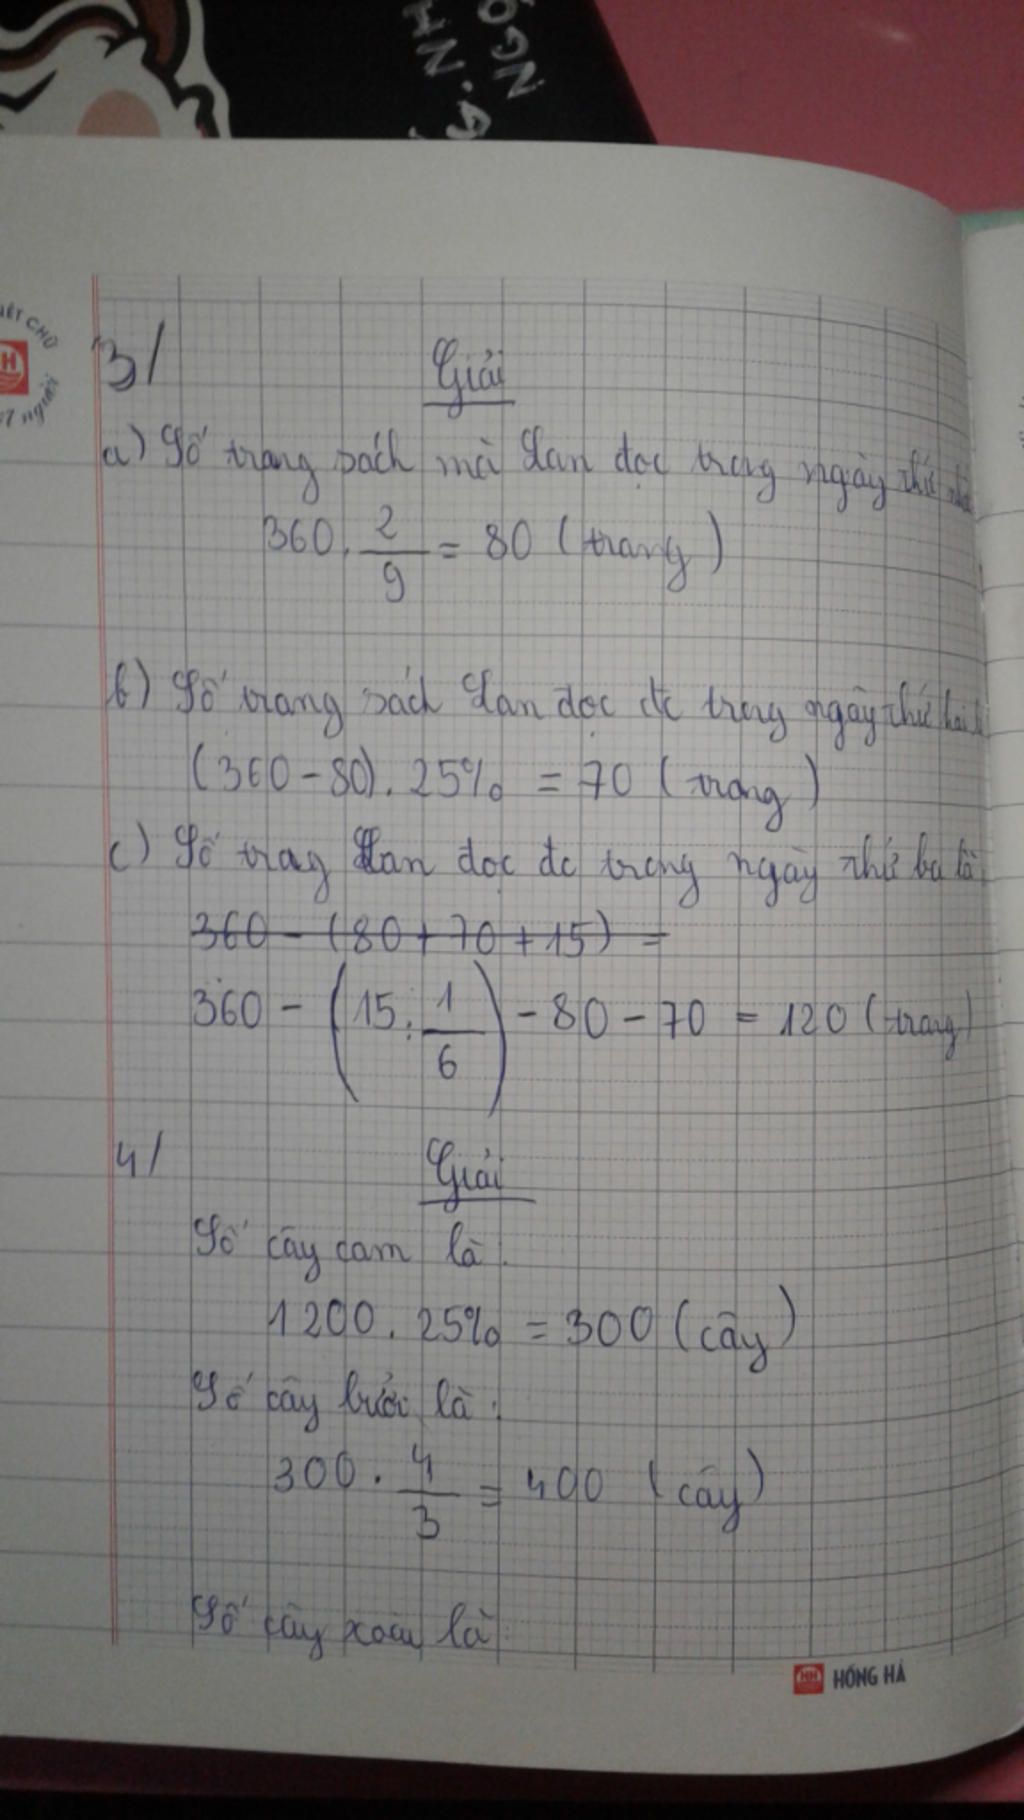 NGỌC
3/ Giải
a) Số trang sách mà Lan đọc trong ngày thứ
360 . 2/9 = 80 (trang)
b) Số trang sách Lan đọc đc trong ngày thứ hai là
(360 - 80) . 25% = 70 (trang)
c) Số trag Lan đọc đc trong ngày thứ ba là
360 - (80 + 70 + 15) =
360 - (15 : 1/6) - 80 - 70 = 120 (trang)
4/ Giải
Số cây cam là :
1200 . 25% = 300 (cây)
Số cây bưởi là :
300 . 4/3 = 400 (cây)
Số cây xoài là :
HH HỒNG HÀ